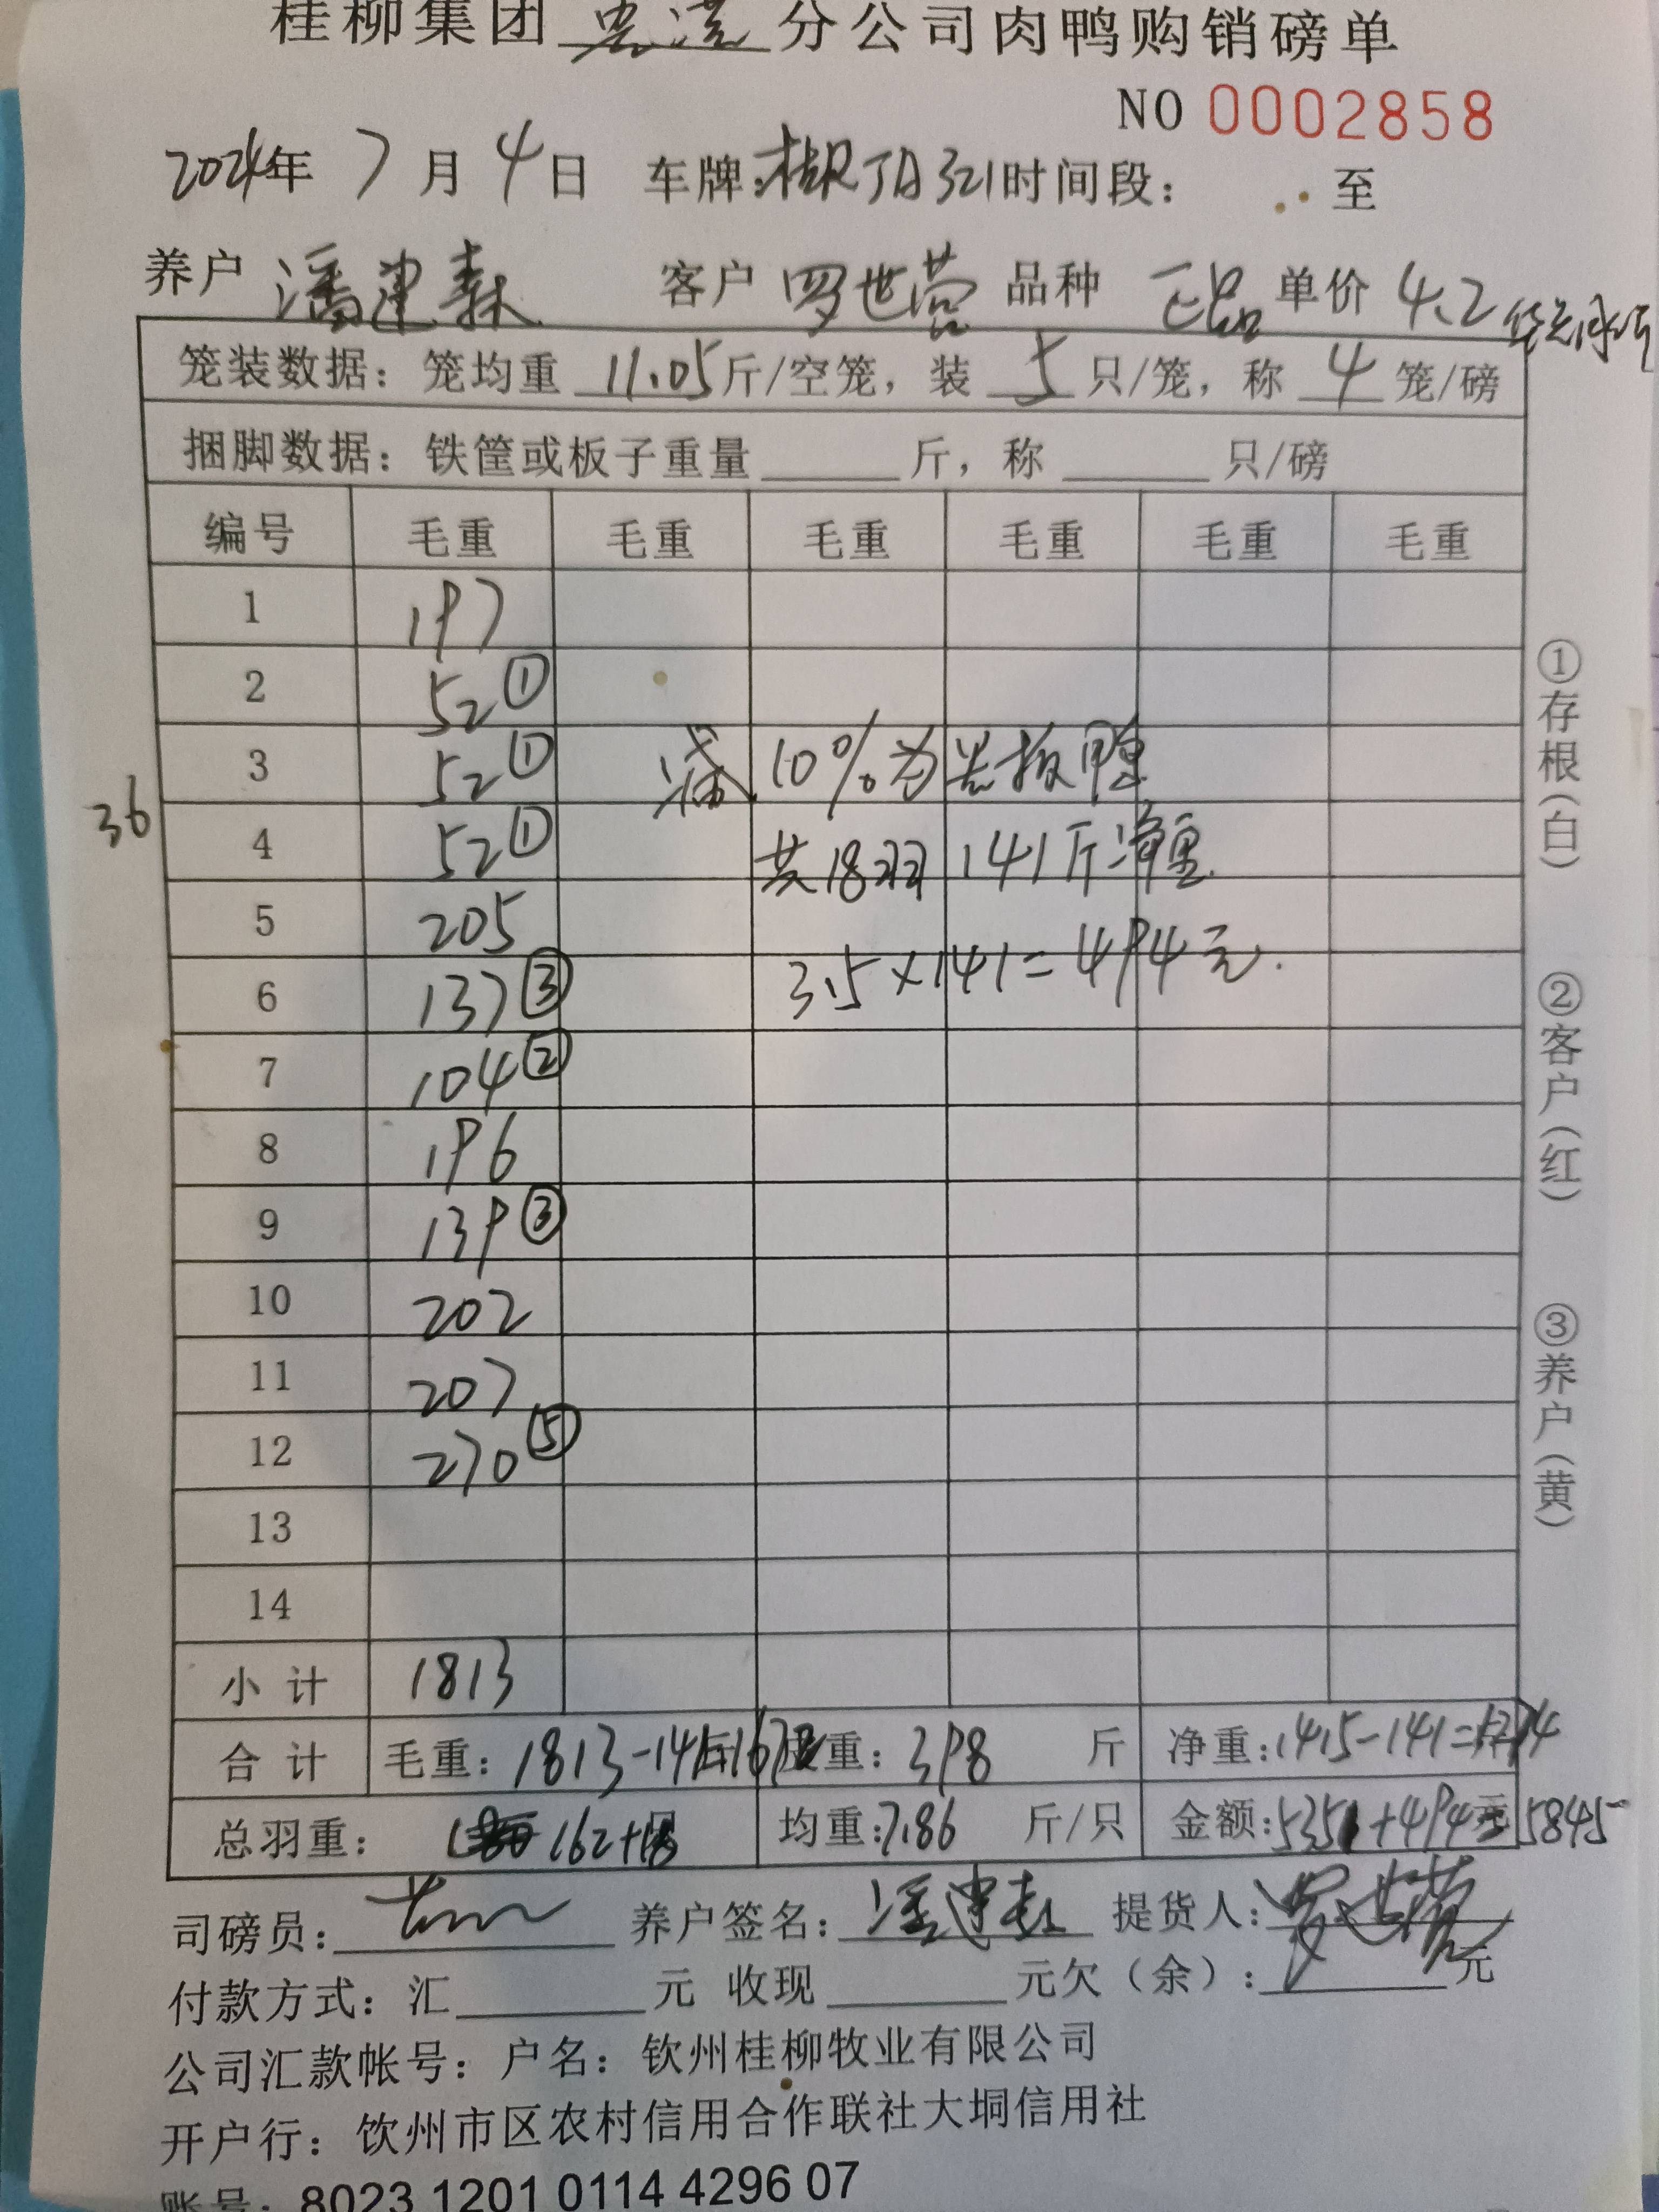 桂柳集团 贵港 分公司肉鸭购销磅单
NO 0002858
2024年 7 月 4 日 车牌: 321 时间段： 至
养户 潘建森 客户 罗世营 品种 正品 单价 4.2
笼装数据：笼均重 11.05 斤/空笼，装 5 只/笼，称 4 笼/磅
捆脚数据：铁筐或板子重量 斤，称 只/磅
编号 毛重 毛重 毛重 毛重 毛重 毛重
1 197
2 52 ①
3 52 ① 减 10% 为光板鸭
36
4 52 ① 共18羽 141斤净重
5 205
6 137 ③ 3.5×141=494元.
7 104 ②
8 196
9 139 ③
10 202
11 207
12 270 ⑤
13
14
小计 1813
合计 毛重: 1813-141=167 重: 398 斤 净重: 1415-141=1274
总羽重： 162+18 均重: 7.86 斤/只 金额: 5351+494= 5845
司磅员: 养户签名: 潘建森 提货人: 罗世营
付款方式：汇 元 收现 元欠（余）: 元
公司汇款帐号：户名：钦州桂柳牧业有限公司
开户行：钦州市区农村信用合作联社大垌信用社
账号: 8023 1201 0114 4296 07
①存根(白)
②客户(红)
③养户(黄)